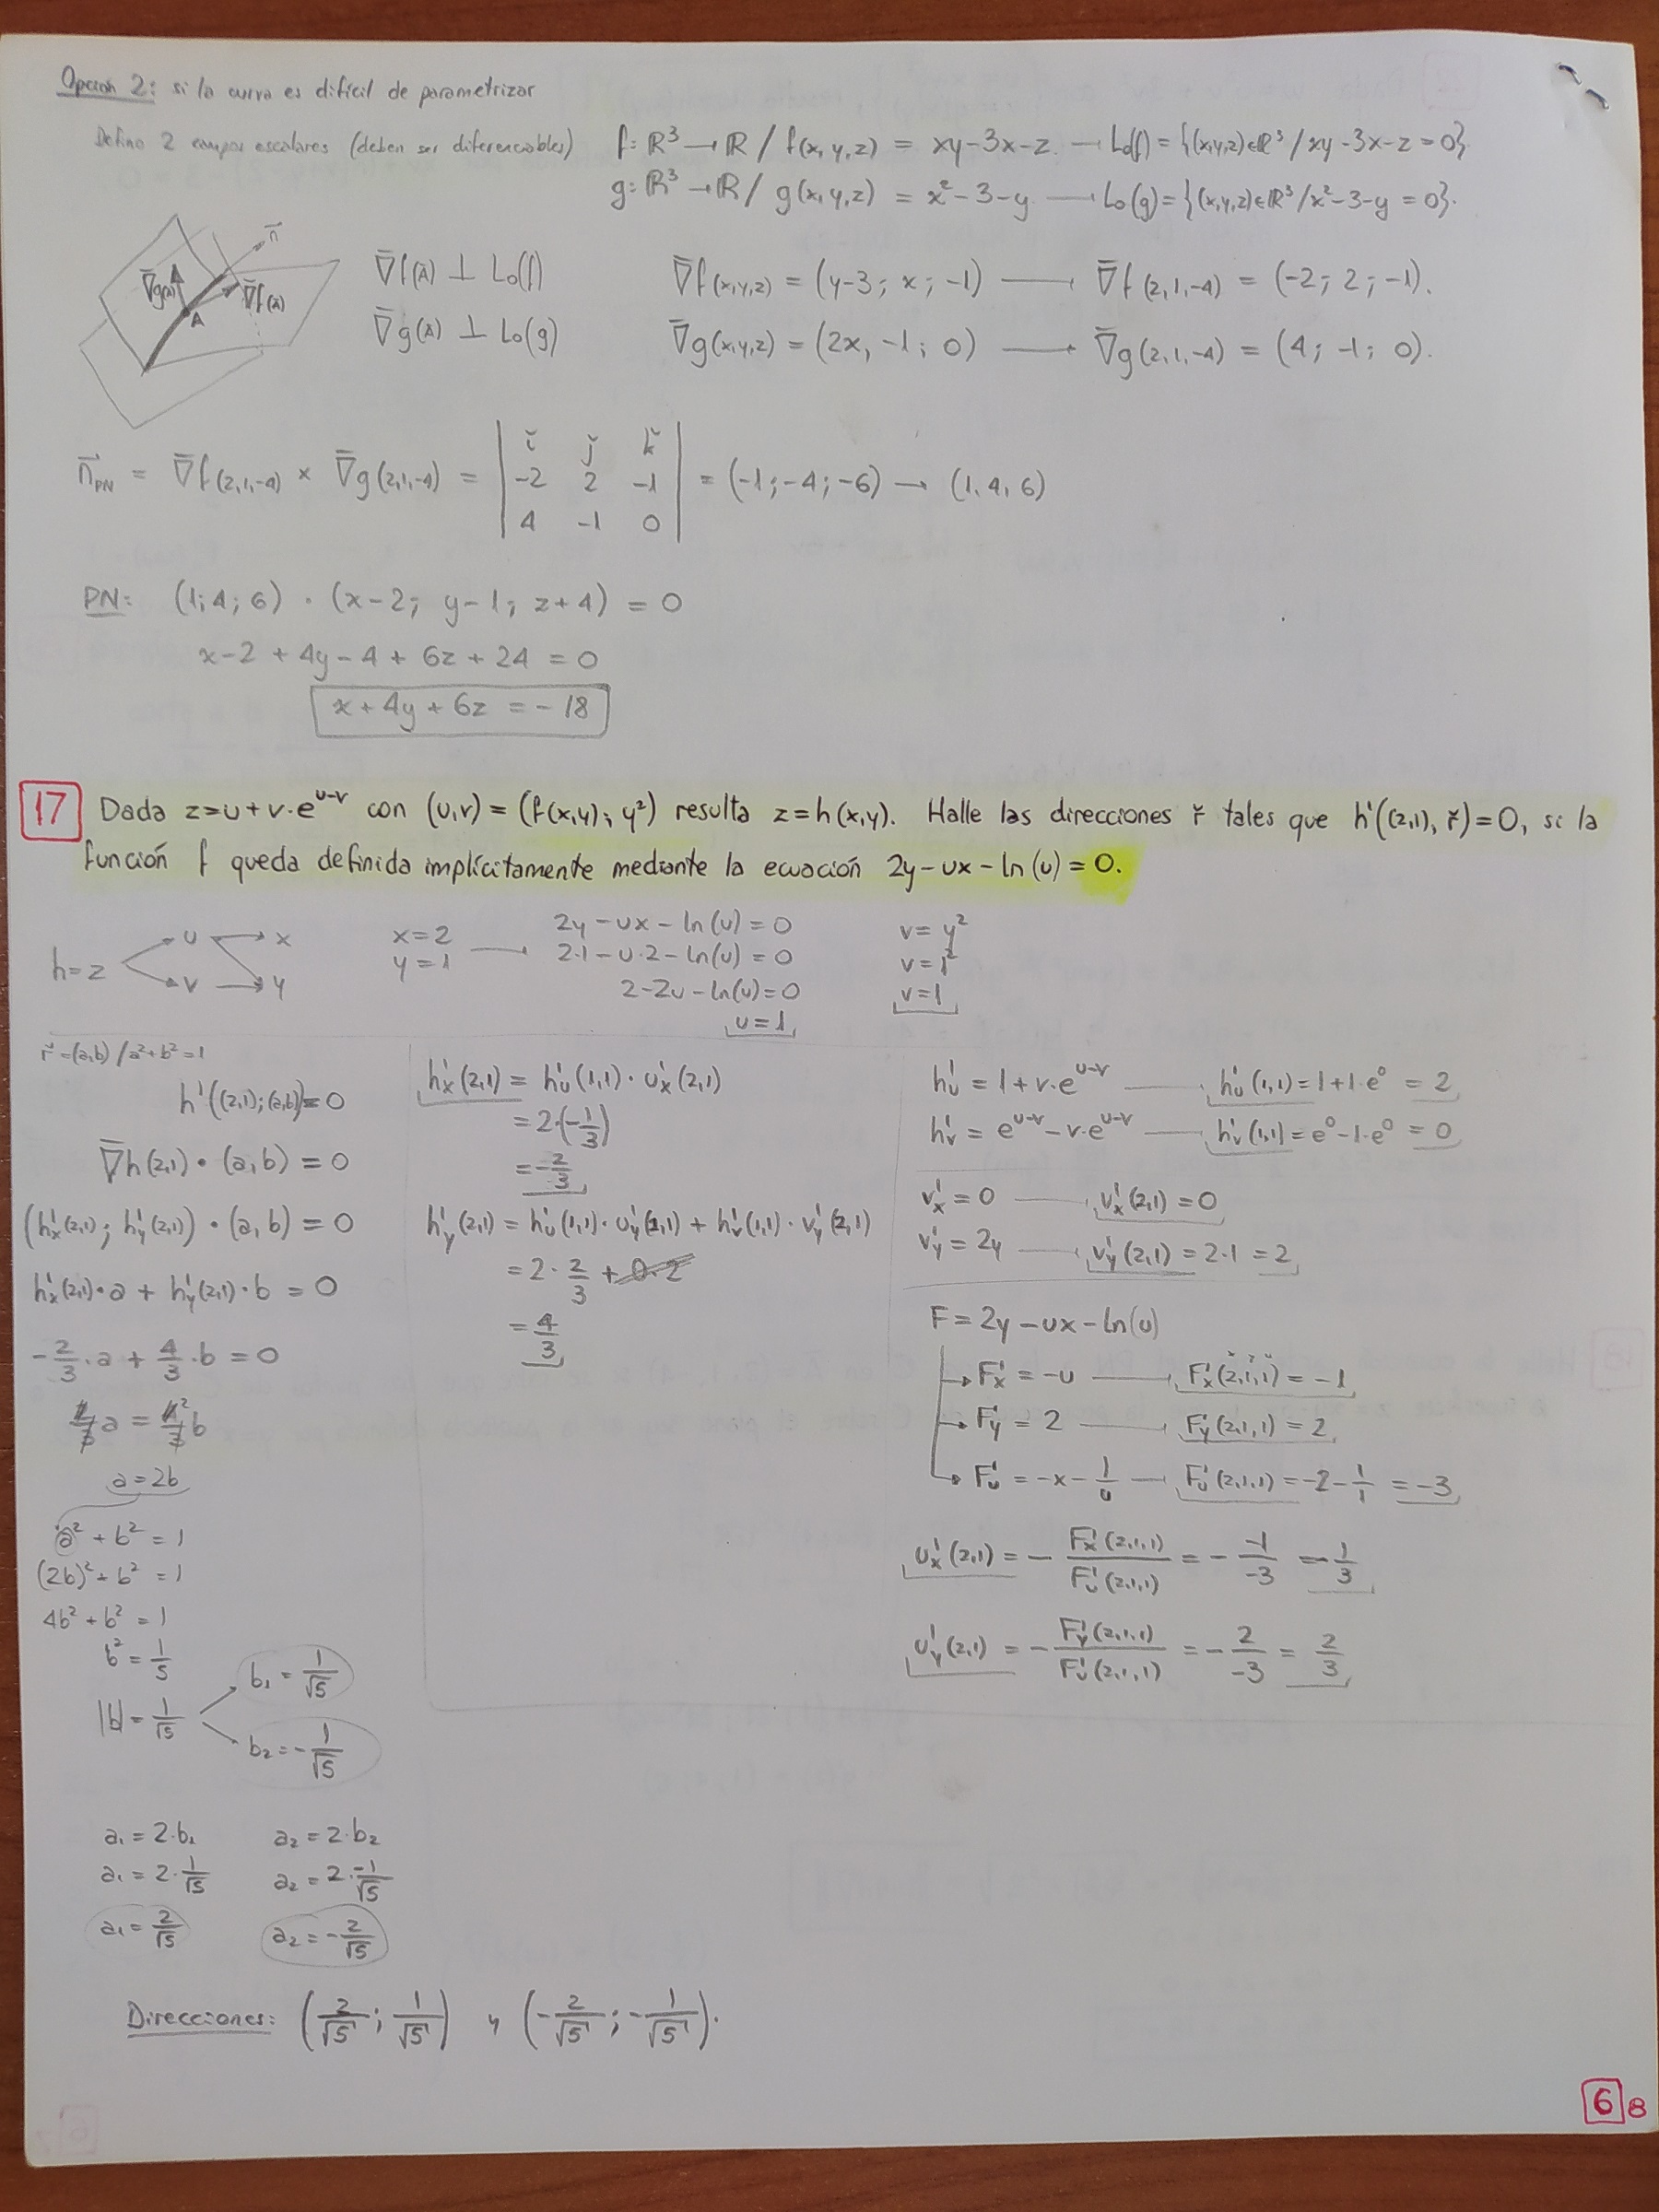 Opción 2: si la curva es difícil de parametrizar
Defino 2 campos escalares (deben ser diferenciables) f: ℝ³ → ℝ / f(x,y,z) = xy-3x-z. → L₀(f) = {(x,y,z) ∈ ℝ³ / xy-3x-z = 0}.
g: ℝ³ → ℝ / g(x,y,z) = x²-3-y → L₀(g) = {(x,y,z) ∈ ℝ³ / x²-3-y = 0}.
n̄
∇̄g(Ā) ∇̄f(Ā)
A
∇̄f(Ā) ⊥ L₀(f) ∇̄f(x,y,z) = (y-3; x; -1) → ∇̄f(2,1,-4) = (-2; 2; -1).
∇̄g(Ā) ⊥ L₀(g) ∇̄g(x,y,z) = (2x, -1; 0) → ∇̄g(2,1,-4) = (4; -1; 0).
n̄_PN = ∇̄f(2,1,-4) × ∇̄g(2,1,-4) = | ĭ ǰ k̆ ; -2 2 -1 ; 4 -1 0 | = (-1; -4; -6) → (1,4,6)
PN: (1; 4; 6) · (x-2; y-1; z+4) = 0
x-2 + 4y-4 + 6z+24 = 0
x + 4y + 6z = -18
17 Dada z=u+v·e^(u-v) con (u,v) = (f(x,y); y²) resulta z=h(x,y). Halle las direcciones ř tales que h'((2,1), ř)=0, si la
función f queda definida implícitamente mediante la ecuación 2y-ux-ln(u)=0.
h=z u x
v y
x=2
y=1 →
2y-ux-ln(u)=0
2·1-u·2-ln(u)=0
2-2u-ln(u)=0
u=1
v=y²
v=1²
v=1
ř=(a,b) / a²+b²=1
h'((2,1);(a,b))=0
∇̄h(2,1)·(a,b)=0
(h'x(2,1); h'y(2,1))·(a,b)=0
h'x(2,1)·a + h'y(2,1)·b = 0
-2/3·a + 4/3·b = 0
2/3 a = 4/3 b 2
a=2b
a²+b²=1
(2b)²+b²=1
4b²+b²=1
b²=1/5
|b|=1/√5
b₁=1/√5
b₂=-1/√5
a₁=2·b₁ a₂=2·b₂
a₁=2·1/√5 a₂=2·-1/√5
a₁=2/√5 a₂=-2/√5
h'x(2,1) = h'u(1,1)·u'x(2,1)
=2·(-1/3)
=-2/3
h'y(2,1) = h'u(1,1)·u'y(2,1) + h'v(1,1)·v'y(2,1)
=2·2/3 + 0·2
=4/3
h'u = 1+v·e^(u-v) → h'u(1,1)=1+1·e⁰ = 2
h'v = e^(u-v)-v·e^(u-v) → h'v(1,1)=e⁰-1·e⁰ = 0
v'x=0 → v'x(2,1)=0
v'y=2y → v'y(2,1)=2·1=2
F=2y-ux-ln(u)
x y u
F'x=-u → F'x(2,1,1)=-1
F'y=2 → F'y(2,1,1)=2
F'u=-x-1/u → F'u(2,1,1)=-2-1/1=-3
u'x(2,1) = - F'x(2,1,1)/F'u(2,1,1) = - -1/-3 = -1/3
u'y(2,1) = - F'y(2,1,1)/F'u(2,1,1) = - 2/-3 = 2/3
Direcciones: (2/√5; 1/√5) y (-2/√5; -1/√5).
6 8